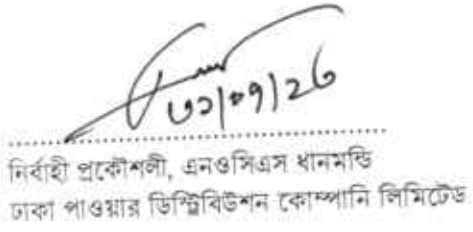 ৩১/০৭/২৩
নির্বাহী প্রকৌশলী, এনওসিএস ধানমন্ডি
ঢাকা পাওয়ার ডিস্ট্রিবিউশন কোম্পানি লিমিটেড